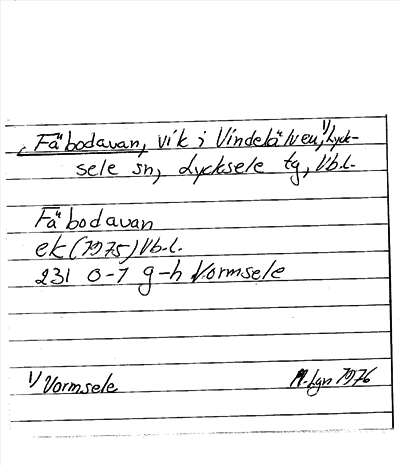 Fäbodavan, vik i Vindelälven, 1/ Lyck-
sele sn, Lycksele tg, Vb.l.
Fäbodavan
ek (1975) Vb.l.
231 0-1 g-h Vormsele
1/ Vormsele
1976